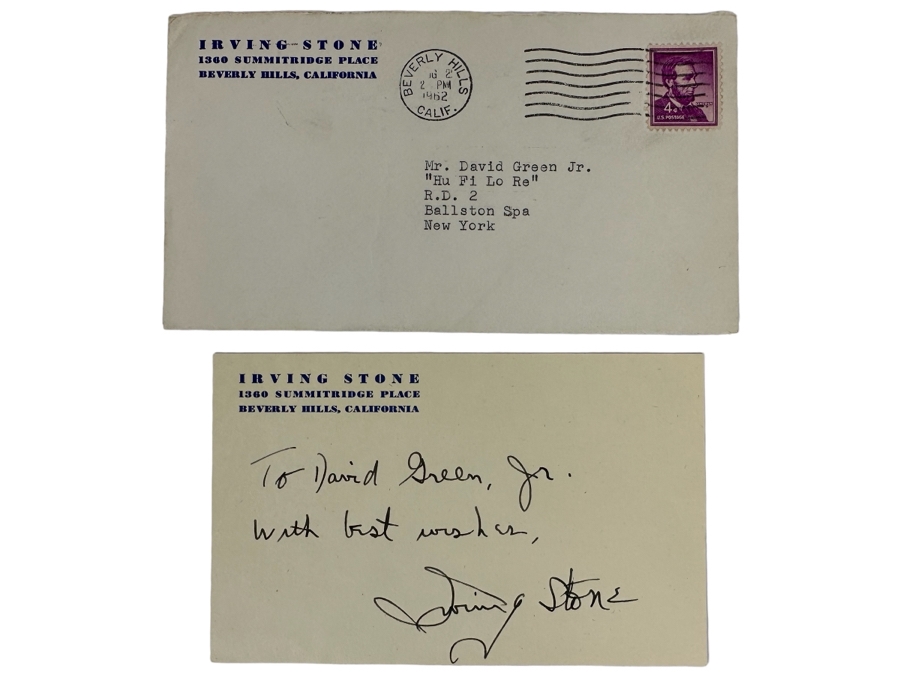 IRVING STONE
1360 SUMMITRIDGE PLACE
BEVERLY HILLS, CALIFORNIA
BEVERLY HILLS
2 PM
1962
CALIF.
4¢
U.S. POSTAGE
Mr. David Green Jr.
"Hu Fi Lo Re"
R.D. 2
Ballston Spa
New York
IRVING STONE
1360 SUMMITRIDGE PLACE
BEVERLY HILLS, CALIFORNIA
To David Green, Jr.
With best wishes,
Irving Stone